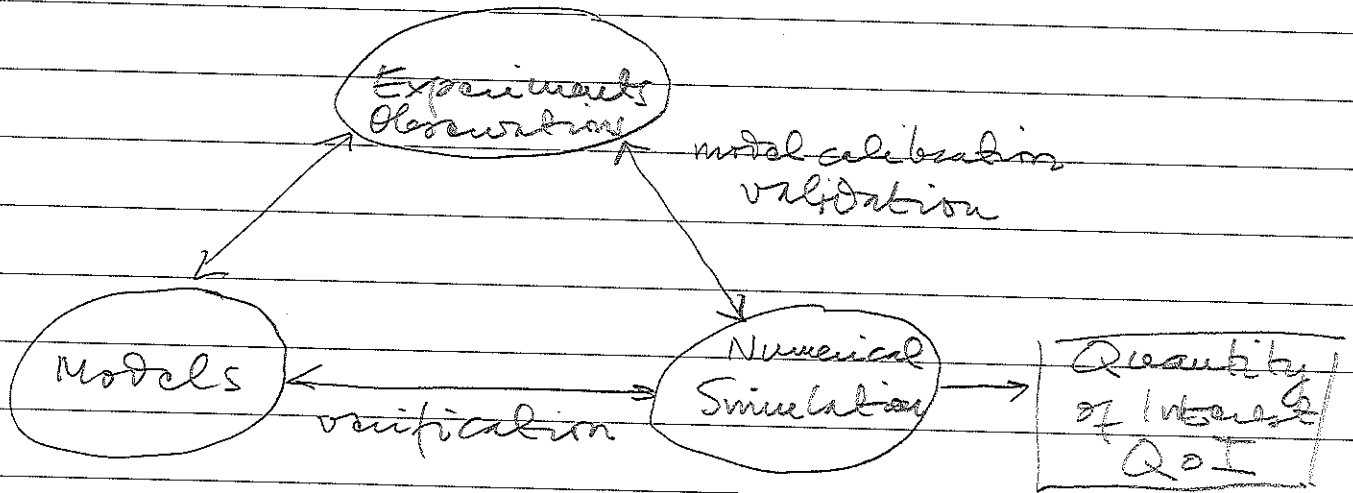 Experiments
Observations
model calibration
validation
Models
verification
Numerical
Simulation
Quantity
of Interest
QoI